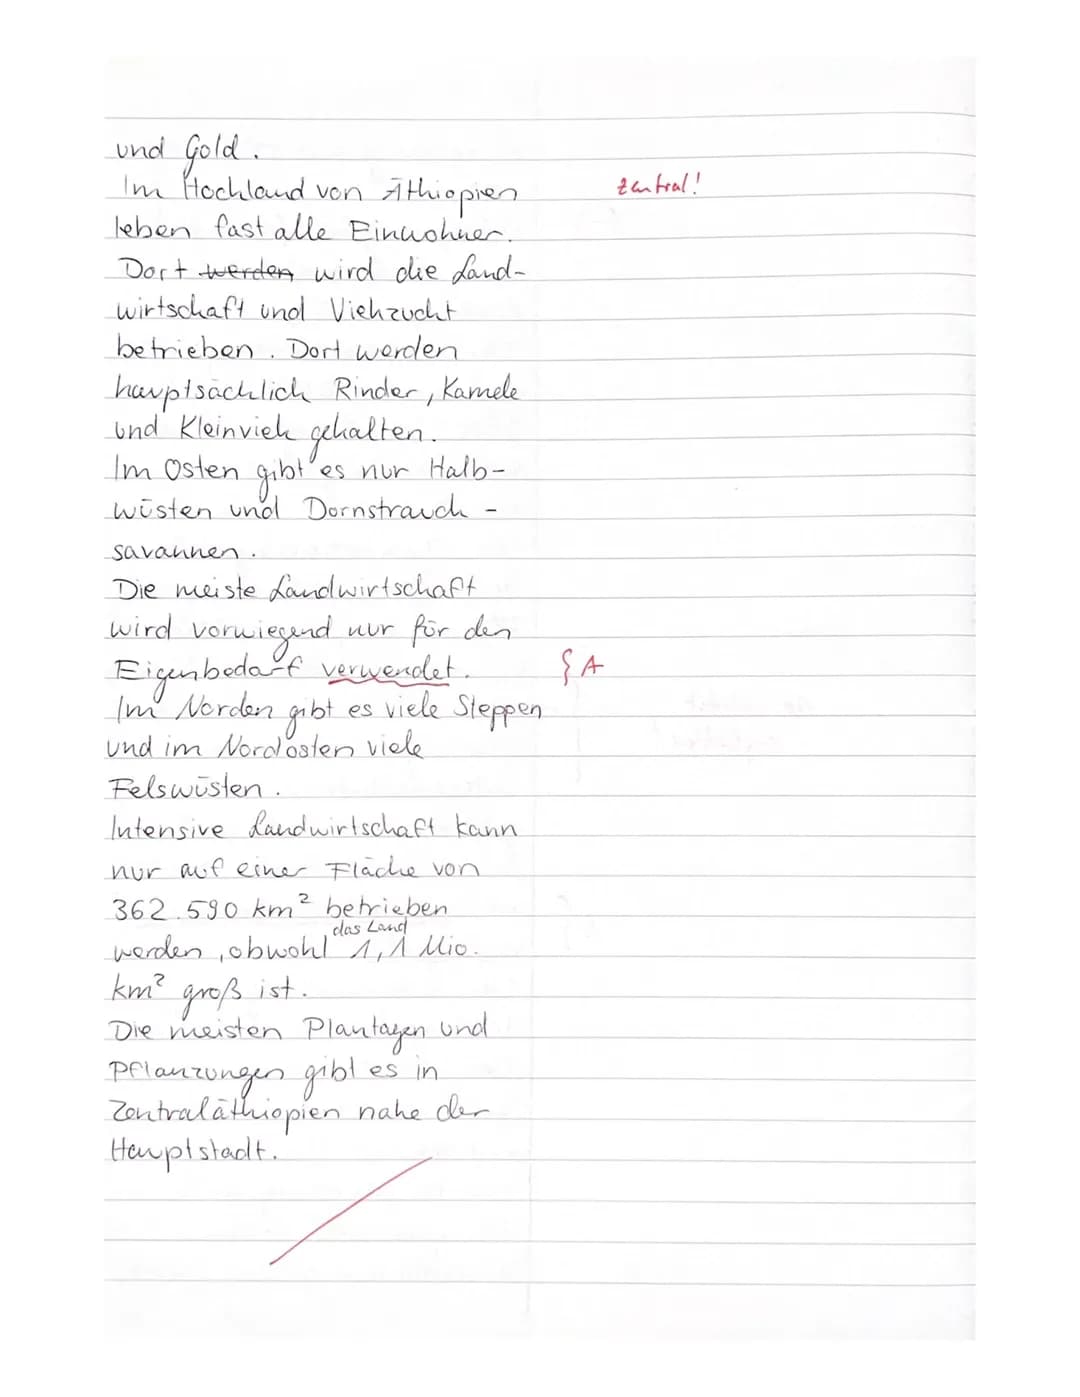 und Gold.
Im Hochland von Äthiopien zentral!
leben fast alle Einwohner.
Dort werden wird die Land-
wirtschaft und Viehzucht
betrieben. Dort werden
hauptsächlich Rinder, Kamele
und Kleinvieh gehalten.
Im Osten gibt es nur Halb-
wüsten und Dornstrauch-
savannen.
Die meiste Landwirtschaft
wird vorwiegend nur für den
Eigenbedarf verwendet. } A
Im Norden gibt es viele Steppen
und im Nordosten viele
Felswüsten.
Intensive Landwirtschaft kann
nur auf einer Fläche von
362.590 km² betrieben
werden, obwohl das Land 1,1 Mio.
km² groß ist.
Die meisten Plantagen und
Pflanzungen gibt es in
Zentraläthiopien nahe der
Hauptstadt.